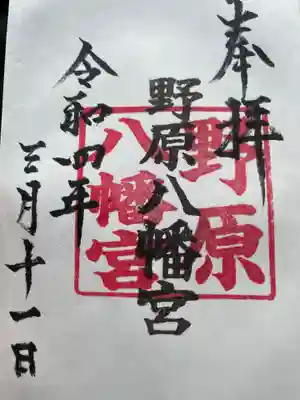 奉拝
野原八幡宮
野原
八幡宮
令和四年
三月十一日